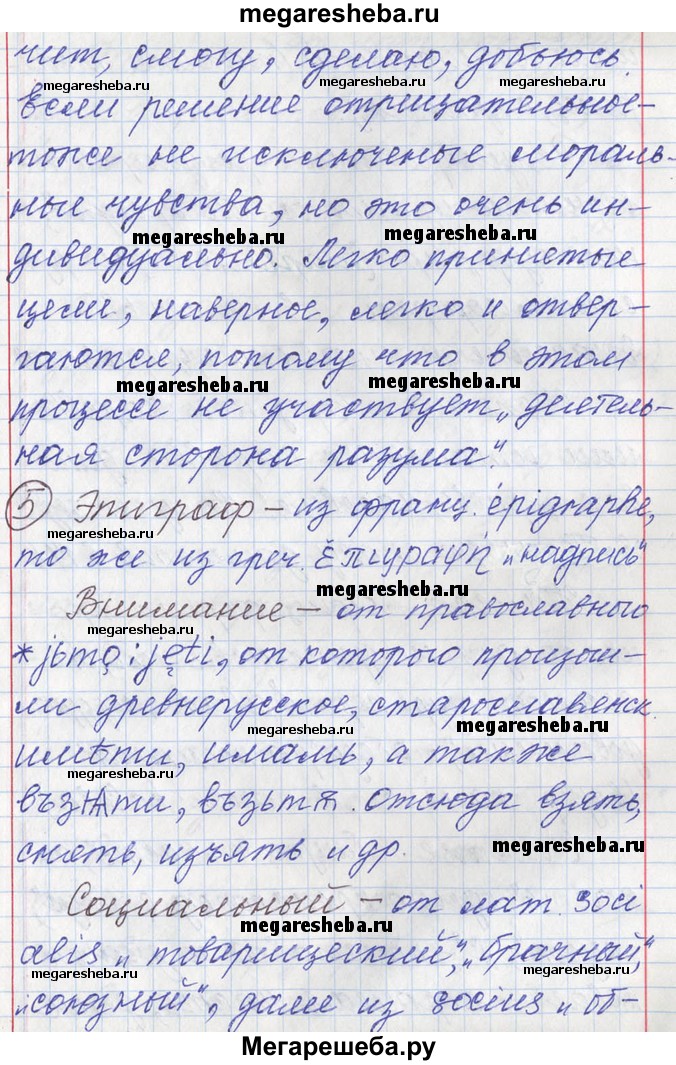 megaresheba.ru
чит, смогу, сделаю, добьюсь.
megaresheba.ru megaresheba.ru
Если решение отрицательное-
тоже не исключеные мораль-
ные чувства, но это очень ин-
megaresheba.ru megaresheba.ru
дивидуально. Легко принятые
цели, наверное, легко и отвер-
гаются, потому что в этом
megaresheba.ru megaresheba.ru
процессе не участвует „деятель-
ная сторона разума“.
5 Эпиграф – из франц. épigraphe,
megaresheba.ru
то же из греч. ἐπιγραφή „надпись“
megaresheba.ru
Внимание – от православного
megaresheba.ru
*jьmǫ : jęti, от которого произош-
ли древнерусское, старославянск.
megaresheba.ru megaresheba.ru
имѣти, имамь, а также
megaresheba.ru
възѩти, възьмѫ. Отсюда взять,
megaresheba.ru
снять, изъять и др.
megaresheba.ru
Социальный – от лат. soci
megaresheba.ru
alis „товарищеский“, „брачный“,
megaresheba.ru megaresheba.ru
„союзный“, далее из socius „об-
megaresheba.ru
Мегарешеба.ру